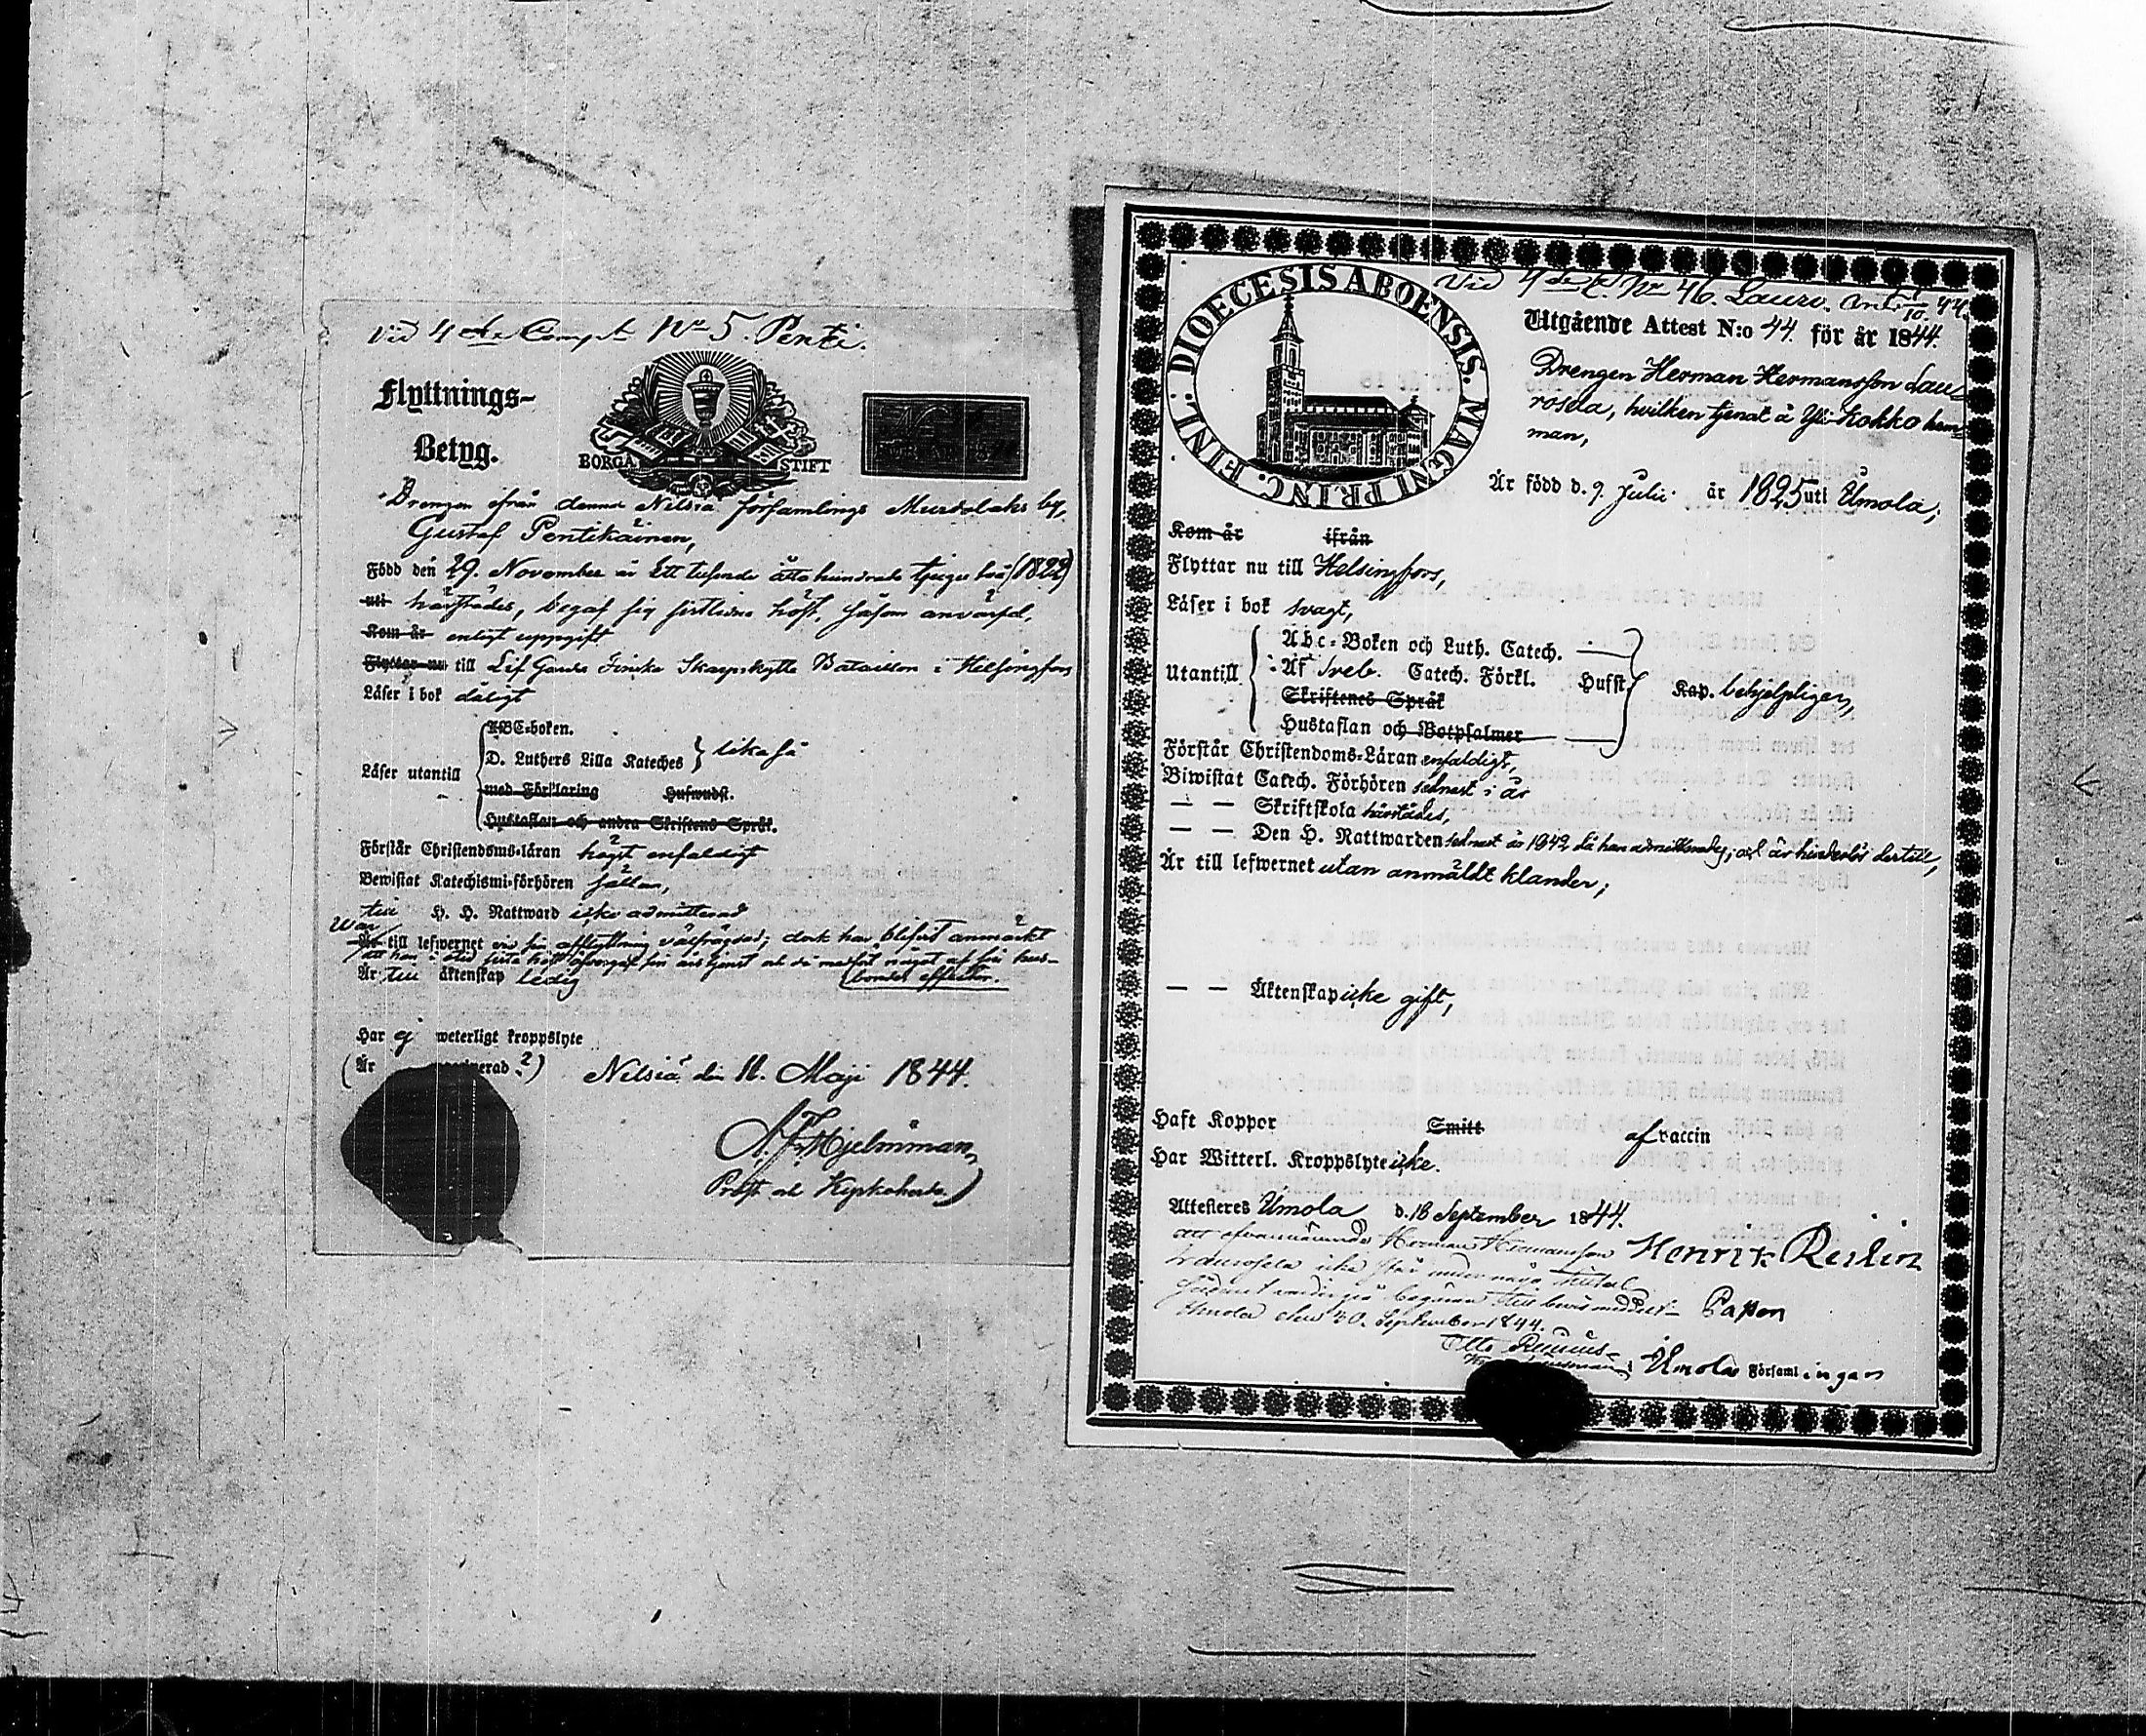 Vid 4de Comp. No 5. Penti.
Flyttnings-
Betyg.
BORGÅ STIFT
Drengen ifrån denna Nilsiä församlings Murdolaks by,
Gustaf Pentikäinen,
Född den 29. November år Ett tusende åtta hundrade tjugu två (1822)
uti härstädes, begaf sig sistledne höst, såsom anvärfd,
Kom år enligt uppgift
Flyttar nu till Lif Gardes Finska Skarpskytte Bataillon i Helsingfors
Läser i bok dåligt
Läser utantill
ABC-boken.
D. Luthers Lilla Kateches } lika så
med Förklaring Hufwudst.
Hustaflan och andra Skriftens Språk.
Förstår Christendoms-läran högst enfaldigt
Bewistat Katechismi-förhören sällan,
till H. H. Nattward icke admitterad
War
Är till lefwernet vid sin afflyttning välfrägdad; dock har blifvit anmärkt
att han i sist sista höst öfvergaf sin årstjenst och då medfört något af sin hus-
bondes effecter.
Är till äktenskap ledig
Har ej weterligt kroppslyte
(Är erad ?)
Nilsiä den 11. Maji 1844.
Hjelmman,
Prost och Kyrkoherde.
DIOECESIS ABOENSIS. MAGNI PRINC. FINL.
Vid 4de C. No 46. Lauro. Ant. 1/10 44.
Utgående Attest N:o 44. för år 1844.
Drengen Herman Hermansson Lau-
rosela, hvilken tjenat å Yli-Kokko hem-
man,
Är född d. 9. Julii. år 1825 uti Ulmola,
Kom år ifrån
Flyttar nu till Helsingfors,
Läser i bok svagt,
Utantill
Abc-Boken och Luth. Catech.
Af Sveb. Catech. Förkl. Hufst. Kap. behjelpligen,
Skriftenes Språk
Hustaflan och Botpsalmer
Förstår Christendoms-Läran enfaldigt,
Biwistat Catech. Förhören sednast i år
— — Skriftskola härstädes,
— — Den H. Nattwarden sednast år 1842 då han admitterades, och är hinderlös dertill,
Är till lefwernet utan anmäldt klander;
— — Äktenskap icke gift,
Haft Koppor Smitt af vaccin
Har Witterl. Kroppslyte icke.
Attesteres Ulmola d. 18 September 1844.
att ofvannämnde Herman Hermansson Henrik Reilin
Laurosela icke står under något tilltal
Pastor
Ulmola den 30. September 1844.
Otto
i Ulmola Församlingen